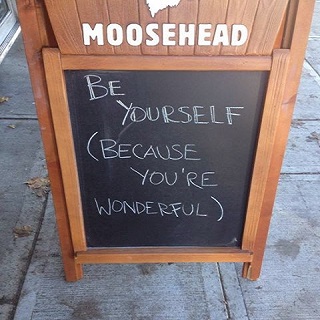 MOOSEHEAD
BE
YOURSELF
(BECAUSE
YOU'RE
WONDERFUL)